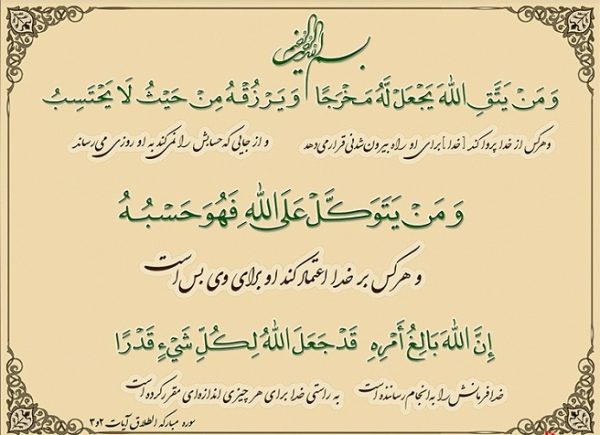 بسم الله الرحمن الرحیم
وَمَنْ يَتَّقِ اللّٰهَ يَجْعَلْ لَهُ مَخْرَجًا وَيَرْزُقْهُ مِنْ حَيْثُ لَا يَحْتَسِبُ
وهرکس از خدا پروا کند [خدا] برای او راه بیرون شدنی قرار می‌دهد و از جایی که حسابش را نمی‌کند به او روزی می‌رساند
وَ مَنْ يَتَوَكَّلْ عَلَى اللّٰهِ فَهُوَ حَسْبُهُ
و هرکس بر خدا اعتماد کند او برای وی بس است
إِنَّ اللّٰهَ بَالِغُ أَمْرِهِ قَدْ جَعَلَ اللّٰهُ لِكُلِّ شَيْءٍ قَدْرًا
خدا فرمانش را به انجام رساننده است به راستی خدا برای هر چیزی اندازه‌ای مقرر کرده است
سوره مبارکه الطلاق آیات ۲و۳